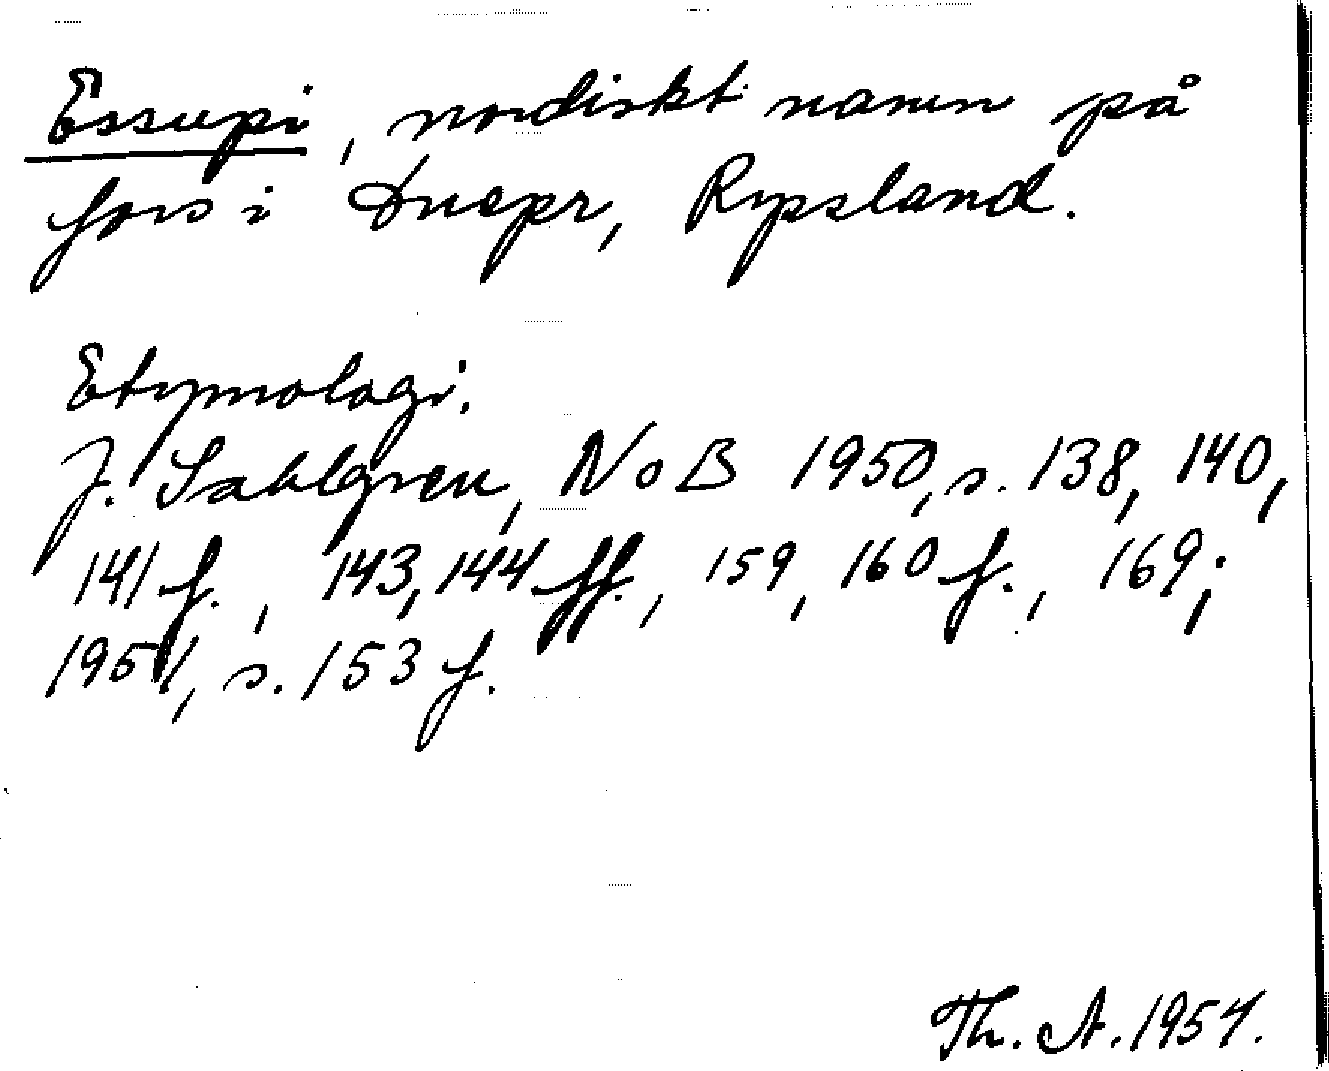 Essupi, nordiskt namn på
fors i Dnepr, Ryssland.
Etymologi.
J. Sahlgren, NoB 1950, s. 138, 140,
141 f., 143, 144 ff., 159, 160 f., 169;
1951, s. 153 f.
Th. A. 1954.